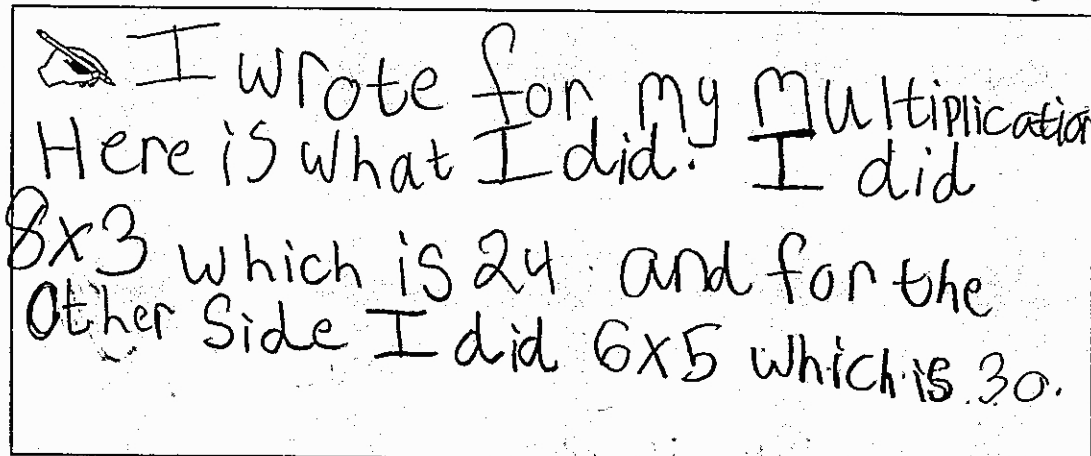 I wrote for my Multiplication
Here is what I did. I did
8x3 which is 24. and for the
Other Side I did 6x5 which is 30.